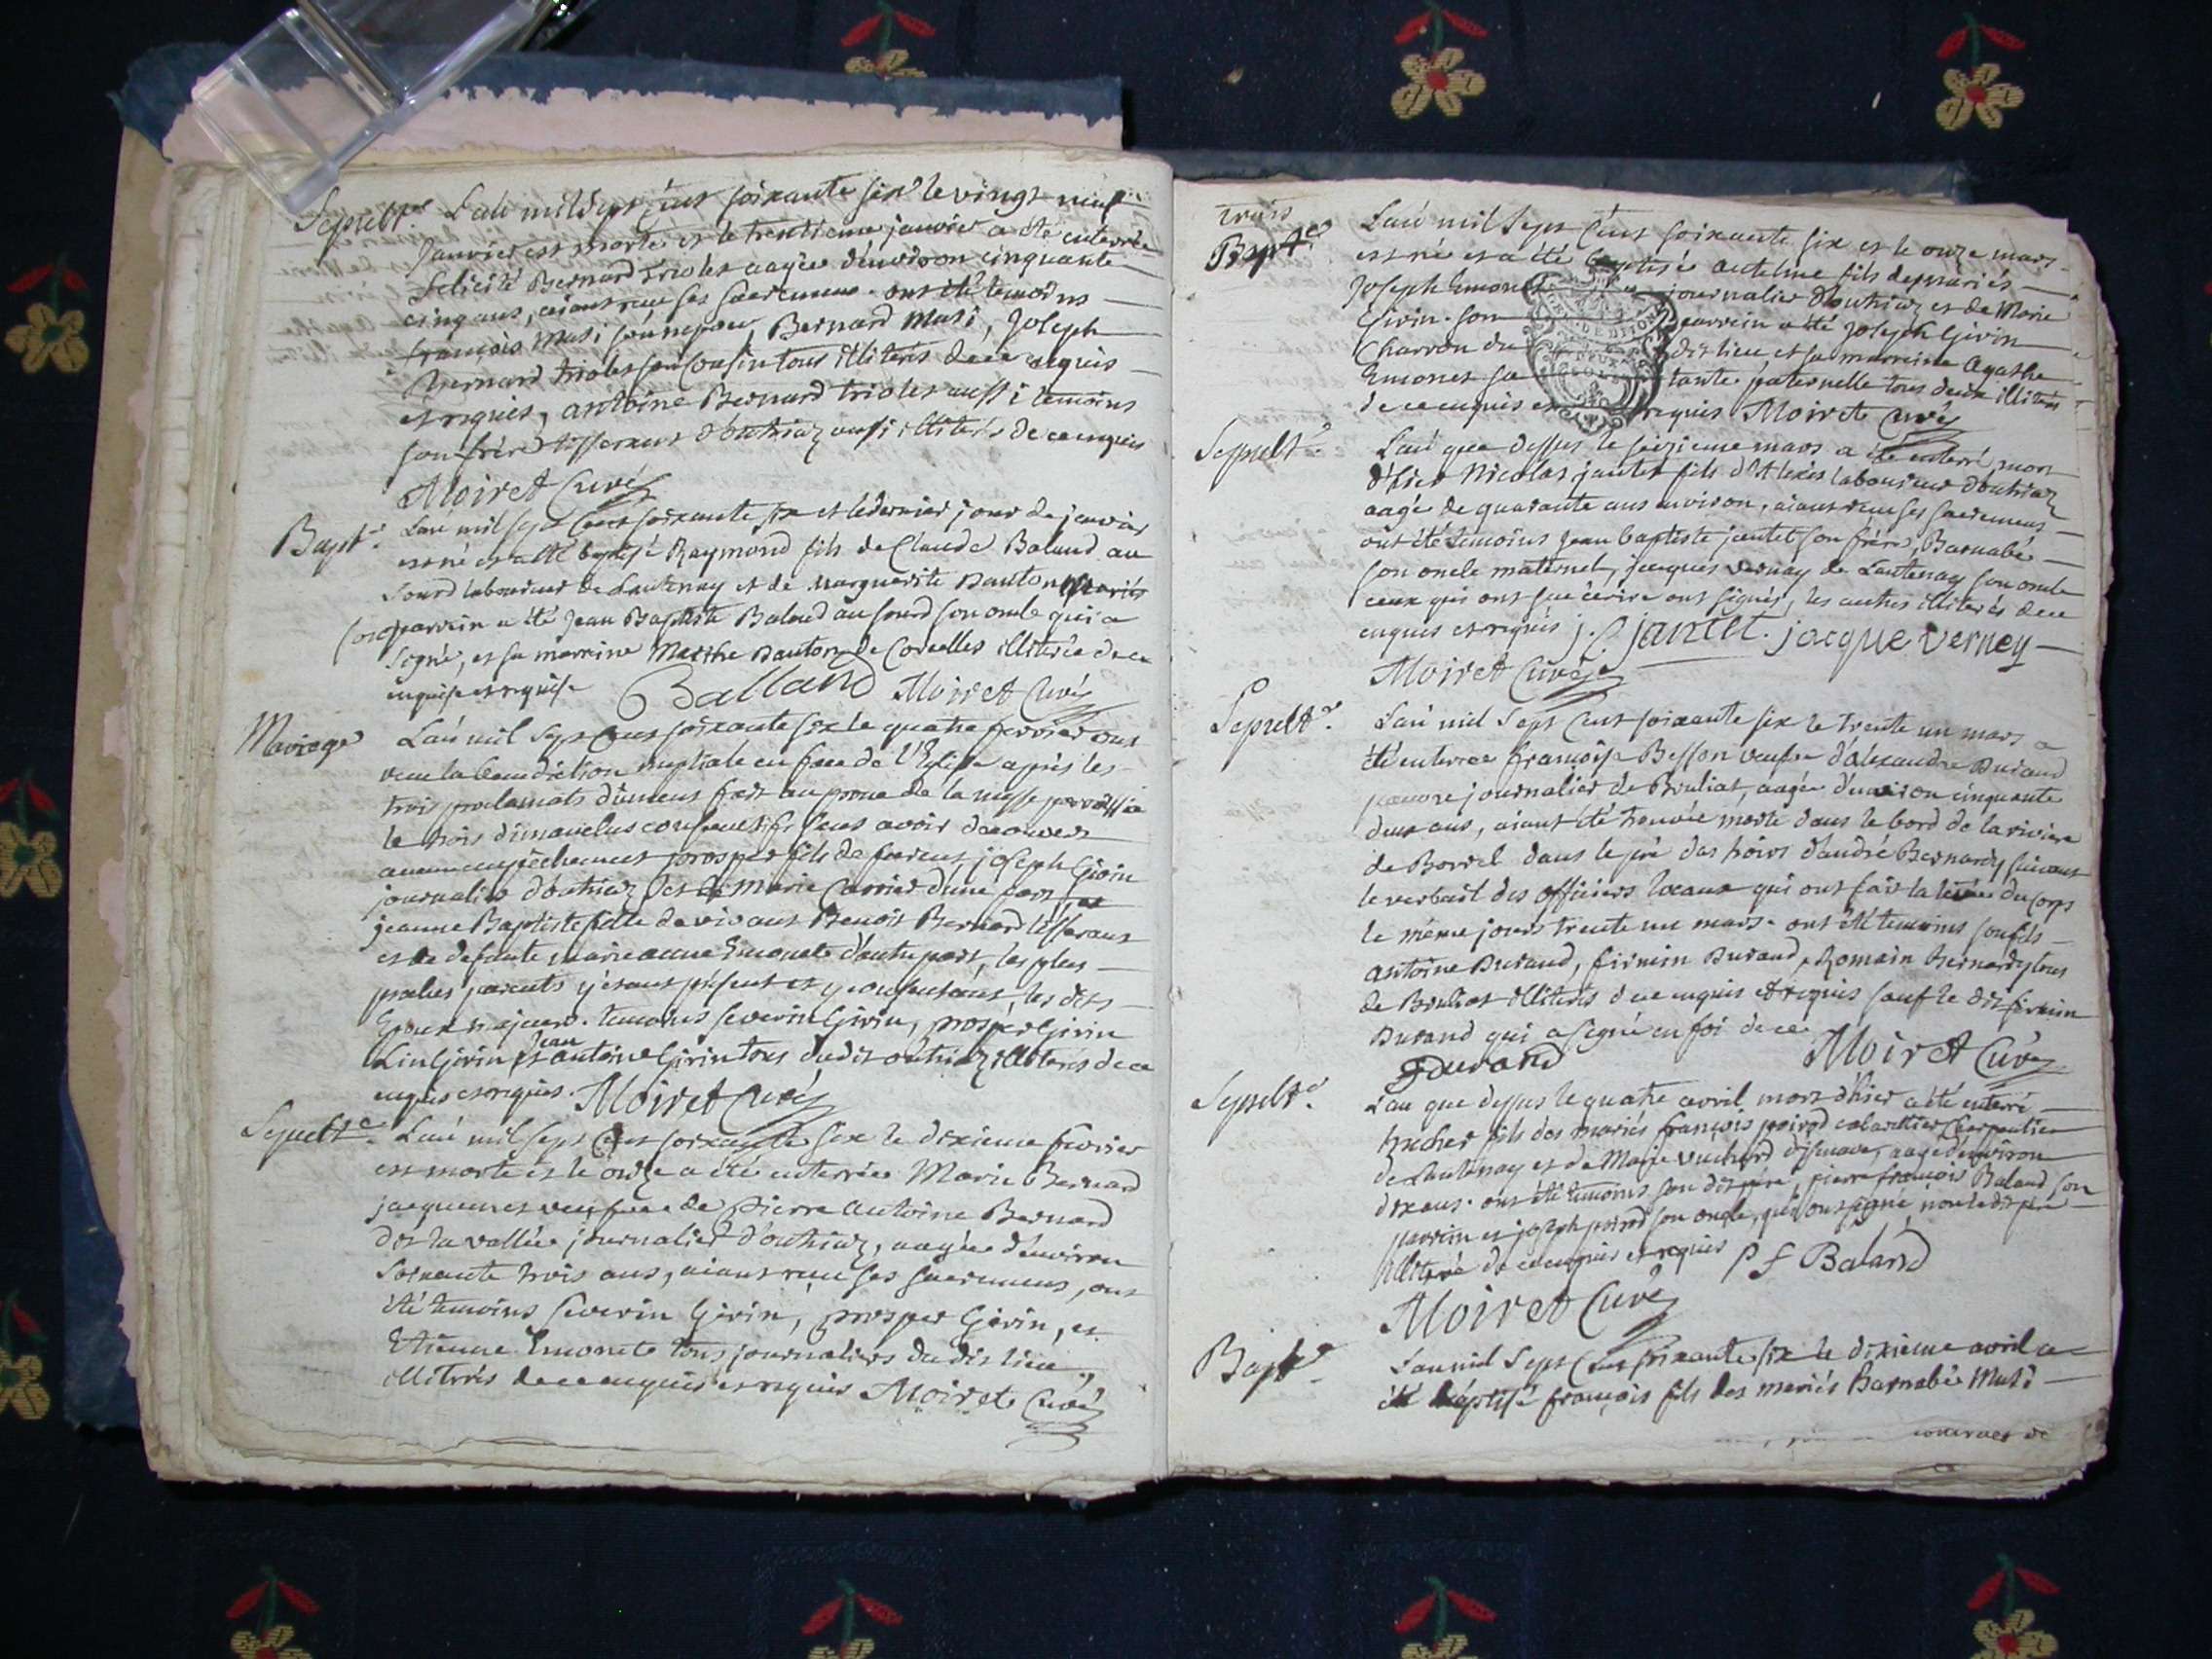 Sepult.e L'an mil sept cent soixante six le vingt neuf
janvier est morte et le trentieme janvier a été enterrée
Felicité Bernard triolet aagée d'environ cinquante
cinq ans, aiant reçu ses sacremens. ont été temoins
françois Musi son neveu, Bernard Musi, Joseph
Bernard triolet son cousin tous illiterés de ce enquis
et requis, antoine Bernard triolet aussi temoins
son frère tisserant d'outriaz aussi illiteré de ce enquis
Moiret Curé
Bapt.e L'an mil sept cent soixante six et le dernier jour de janvier
est né et a été baptisé Raymond fils de Claude Baland au
sourd laboureur de Lantenay et de Marguerite Danton mariés
son parrein a été Jean Baptiste Baland au sourd son oncle qui a
signé, et sa marreine Marthe Danton de Corcelles illiterée de ce
enquise et requise Balland Moiret Curé
Mariage L'an mil sept cent soixante six le quatre fevrier ont
reçu la benediction nuptiale en face de l'Eglise après les
trois proclamats dûement fait au prone de la messe parroissia
le trois dimanches consecutifs sans avoir decouvert
aucun empêchement prosper fils de Joseph Girin
journalier d'outriaz et de Marie Carrier d'une part et
jeanne Baptiste fille de vivant Benoit Bernard tisserant
et de defunte marie anne Emonete d'autre part, les plus
proches parents y étant présent et y consentant, les dits
Epoux majeurs. temoins severin Girin, prosper Girin
Lin Girin et Jean antoine Girin tous dudit outriaz illiterés de ce
enquis et requis. Moiret Curé
Sepult.e L'an mil sept cent soixante six le dixieme fevrier
est morte et le onze a été enterrée Marie Bernard
jacquemet veufve de Pierre Antoine Bernard
dit la vallée journalier d'outriaz, aagée d'environ
soixante trois ans, aiant reçu ses sacremens, ont
été temoins severin Girin, prosper Girin, et
Etienne Emonete tous journaliers du dit lieu
illiterés de ce enquis et requis Moiret Curé
trois
Bapt.e L'an mil Sept Cent soixante six et le onze mars
est né et a été baptisé antelme fils des mariés
Joseph Emonet journalier d'outriaz et de Marie
Girin. son parrein a été joseph Girin
Charron du dit lieu et sa marreine Agathe
Emonet sa tante paternelle tous deux illiterés
de ce enquis et requis Moiret Curé
Sepult.e L'an que dessus le seizieme mars a été enterré, mort
d'hier Nicolas jantet fils d'Alexis laboureur d'outriaz
aagé de quarante ans environ, aiant reçu ses sacremens
ont été temoins Jean baptiste jantet son frère, Barnabé
son oncle maternel, jacques vernay de Lantenay son oncle
ceux qui ont sçu écrire ont signés, les autres illiterés de ce
enquis et requis j. B jantet. jacque verney
Moiret Curé
Sepult.e L'an mil Sept Cent soixante six le trente un mars a
été enterrée françoise Besson veufve d'alexandre Durand
pauvre journalier de Brulliat, aagée d'environ cinquante
deux ans, aiant été trouvée morte dans le bord de la riviere
de Borrel dans le pré des hoirs d'andré Bernardy suivant
le verbail des officiers locaux qui ont fait la levée du corps
le même jour trente un mars. ont été temoins son fils
antoine Durand, firmin Durand, Romain Bernardy tous
de Brulliat illiterés de ce enquis et requis sauf le dit firmin
Durand qui a signé en foi de ce
F durand Moiret Curé
Sepult.e L'an que dessus le quatre avril mort d'hier a été enterré
fils des mariés françois poirod cabarettier Charpentier
de Lantenay et de Marie vuchard d'isenave, aagé d'environ
dix ans. ont été temoins son dit père, pierre françois Baland son
parrein et joseph poirod son oncle, qui ont signé, non le dit père
illiteré de ce enquis et requis P f Baland
Moiret Curé
Bapt.e L'an mil Sept Cent soixante six le dixieme avril a
été baptisé françois fils des mariés Barnabé Musi